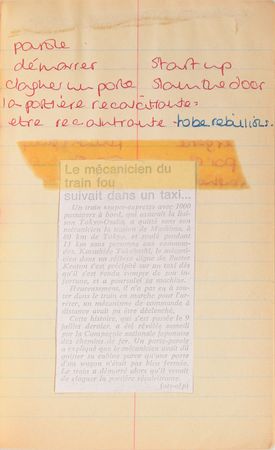 parole
démarrer start up
claquer un porte slam the door
la portière recalcitrante.
etre recalcitrante to be rebellious.
Le mécanicien du
train fou
suivait dans un taxi...
Un train avec 1000
passagers à bord, qui assurait la liai-
son Tokyo-Osaka, a quitté sans son
mécanicien la station de
60 km de Tokyo, et roulé pendant
11 km sans personne aux comman-
des. Katsuhide Takahashi, le mécani-
cien dans un réflexe digne de Buster
Keaton s'est précipité sur un taxi dès
qu'il s'est rendu compte de son in-
fortune, et a poursuivi sa machine.
Heureusement, il n'a pas eu à sau-
ter dans le train en marche pour l'ar-
rêter, un mécanisme de commande à
distance avait pu être déclenché.
Cette histoire, qui s'est passée le 9
juillet dernier, a été révélée samedi
par la Compagnie nationale japonaise
des chemins de fer. Un porte-parole
a expliqué que le mécanicien avait dû
quitter sa cabine parce qu'une porte
d'un wagon n'était pas bien fermée.
Le train a démarré alors qu'il venait
de claquer la portière récalcitrante.